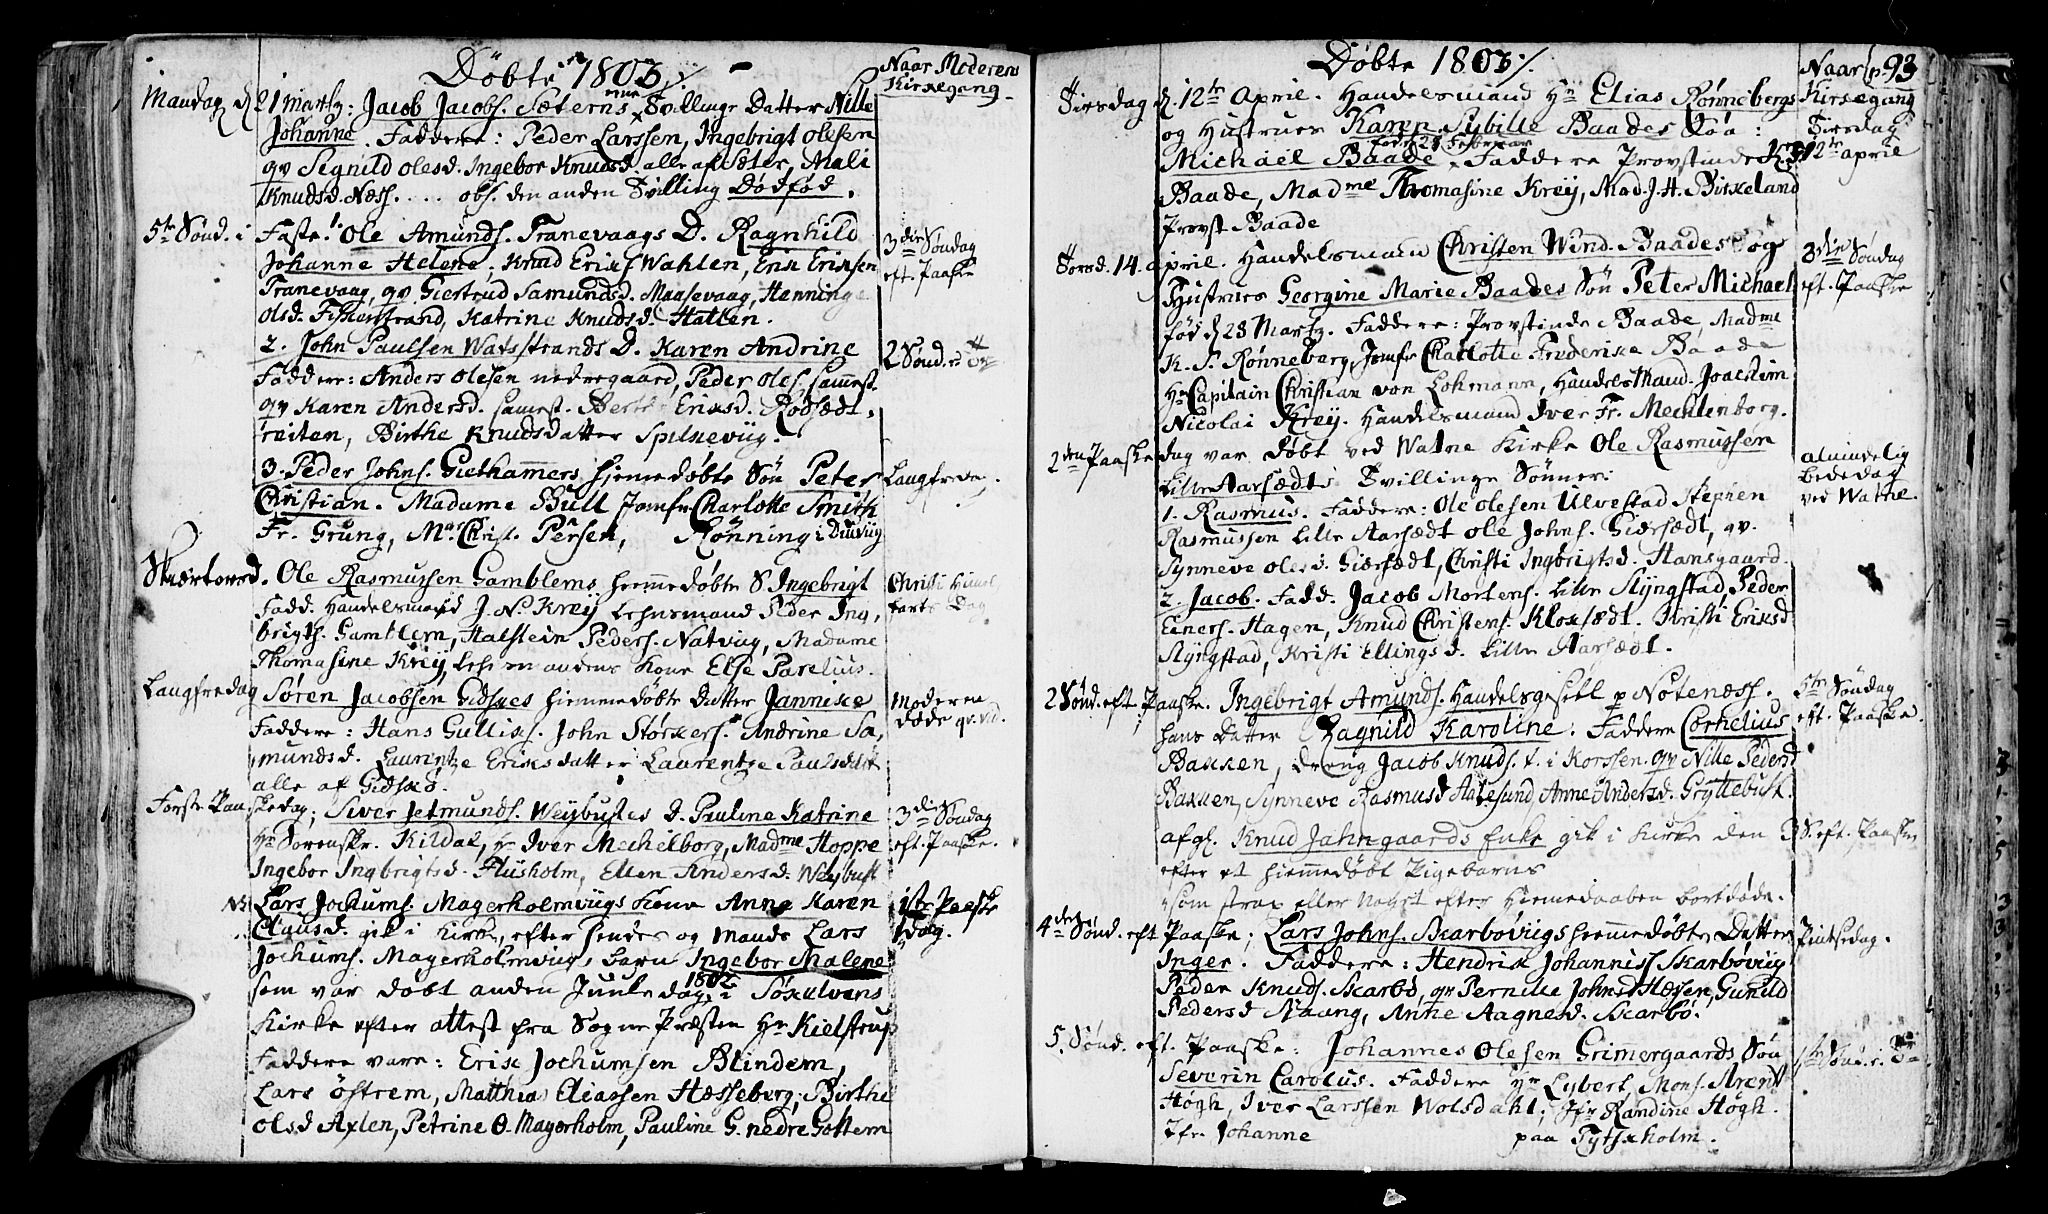 Döbte 1803
Naar Moderens
Kirkegang
Mandag d. 21 Marts: Jacob Jacobs. Sæterns Tvillinge Datter Nille
Johanne. Faddere: Peder Larssen, Ingebrigt Olesen
qv Signild Olesd. Ingebor Knudsd. alle af Sæter, Mali
Knudsd. Næss. ... obs. den anden Tvilling Dødfød.
5te Sønd. i Faste. Ole Amunds. Tranevaags D. Ragnhild
3die Søndag
Johanne Helene. Knud Eriks Wahlen, Erik Eriksen
eft. Paaske
Tranevaag, qv Giertrud Samundsd. Maasevaag, Henninge
Olsd. Fiskerstrand, Katrine Knudsd. Hatlen.
2. John Paulsen Watsstrands D. Karen Andrine
2 Sønd.
Faddere: Anders Olesen nedregaard, Peder Oles. samest.
qv Karen Andersd. samest. Berte Eriksd. Rødsædt,
reiten, Birthe Knudsdatter Spilkeviig.
3. Peder Johns. Giethamers hjemedøbte Søn Peter
Langfredag.
Christian. Madame Bull Jomfr Charlotte Smith
Fr. Grung, Mr Christ. Persen, Rønning i Duuviig
Skiærtorsd. Ole Rasmussen Gamblems hiemedøbte S. Ingebrigt
Christi Himel
Fadd. Handelsmand J. N. Krey Lehnsmand Peder Ing,
farts Dag
brigts. Gamblem, Halstein Peders. Natvig, Madame
Thomasine Krey, Lehnsmandens Kone Else Parelius.
Langfredag Søren Jacobsen Gidskes hiemedøbte Datter Jannike
Moderen
Faddere: Hans Gulliks. John Størkers. Andrine Sa,
døde
munds d. Laurentze Eriksdatter Laurentze Paulsdatt
alle af Gidskø.
Første Paaskedag; Siver Jetmunds. Weybustes D. Pauline Katrine
3die Søndag
Hr Sorenskr. Kildal, Hr Iver Mechelborg, Madme Hoppe
eft. Paaske.
Ingebor Ingbrigtsd. Fliisholm, Ellen Andersd. Weybust
NB Lars Jochums. Magerholmviigs Kone Anne Karen
1ste Paaske
Clausd. gik i Kirke, efter hendes og Mands Lars
dag.
Jochums. Magerholmviigs barn Ingebor Malene
som var døbt anden Juuledag 1802 i Søkelvens
Kirke efter attest fra Sogne Præsten Hr Kielstrup
Faddere vare: Erik Jochumsen Blindem,
Lars Østrem, Matthias Eliassen Hæsseberg; Birthe
Olsd Axlen, Petrine O. Magerholm, Pauline G. nedre Gottem
Döbte 1803
Naar p. 93
Kirkegang
Tirsdag d. 12te April. Handelsmand Hr Elias Rønnebergs
Tirsdag
og Hustrues Karen Sybille Baades Søn:
12te april
Michael Baade født 28 Februar. Faddere Provstinde
Baade, Madme Thomasine Krey, Mad. J. H. Birkeland
Provst Baade
Torsd. 14. April. Handelsmand Christen Wind. Baades og
3die Søndag
Hustrues Georgine Marie Baades Søn Peter Michael
eft. Paaske
fød d 28 Marts. Faddere: Provstinde Baade, Madme
K. S. Rønneberg, Jomfr Charlotte Frederike Baade
Hr Capitain Christian von Lohmann, Handels Mand. Joachim
Nicolai Krey. Handelsmand Iver Fr. Mechlenborg.
2den Paaskedag var døbt ved Watne Kirke Ole Rasmussen
almindelig
Lille Aarsædts Tvillinge Sønner:
bededag
ved Watne.
1. Rasmus. Faddere: Ole Olesen Ulvestad Stephen
Rasmussen Lille Aarsædt Ole Johns. Giærsædt, qv.
Synneve Olesd. Giærsædt, Christi Ingbrigtsd. Hansgaard.
2. Jacob. Fadd. Jacob Mortens. Lille Slyngstad, Peder
Einers. Hagen, Knud Christens. Kloksædt. Kristi Eriksd
Slyngstad, Kristi Ellingsd. Lille Aarsædt.
2 Sønd. eft. Paaske. Ingebrigt Amunds. Handelsgesell p Notenæss.
5te Søndag
hans Datter Ragnild Karoline. Faddere Cornelius
eft. Paaske.
Bakken, dreng Jacob Knuds. t. i Korssen. qv Nille Pedersd
Bakken, Synneve Rasmusd Aalesund, Anne Andersd. Gryttebust.
afgl. Knud Jahngaards Enke gik i Kirke den 3 S. eft. Paaske
efter et hiemedøbt Pigebarns
som strax eller Nogit efter Hiemedaaben bortdøde.
4de Sønd. eft Paaske; Lars Johns. Skarbøviigs hiemedøbte Datter
Pintsedag.
Inger. Faddere: Hendrik Johanniss Skarbøviig
Peder Knuds. Skarbø, qv Pernille Johnsd Hessen, Gunild
Pedersd Slaang, Anne Aagnesd. Skarbø.
5. Sønd. eft. Paaske: Johannes Olesen Grimergaards Søn
Severin Carolus. Faddere Hr Lybert, Mons. Arent
Høgh, Iver Larssen Wolsdahl; Jfr Randine Høgh.
Jfr. Johanne paa Tytsholm.